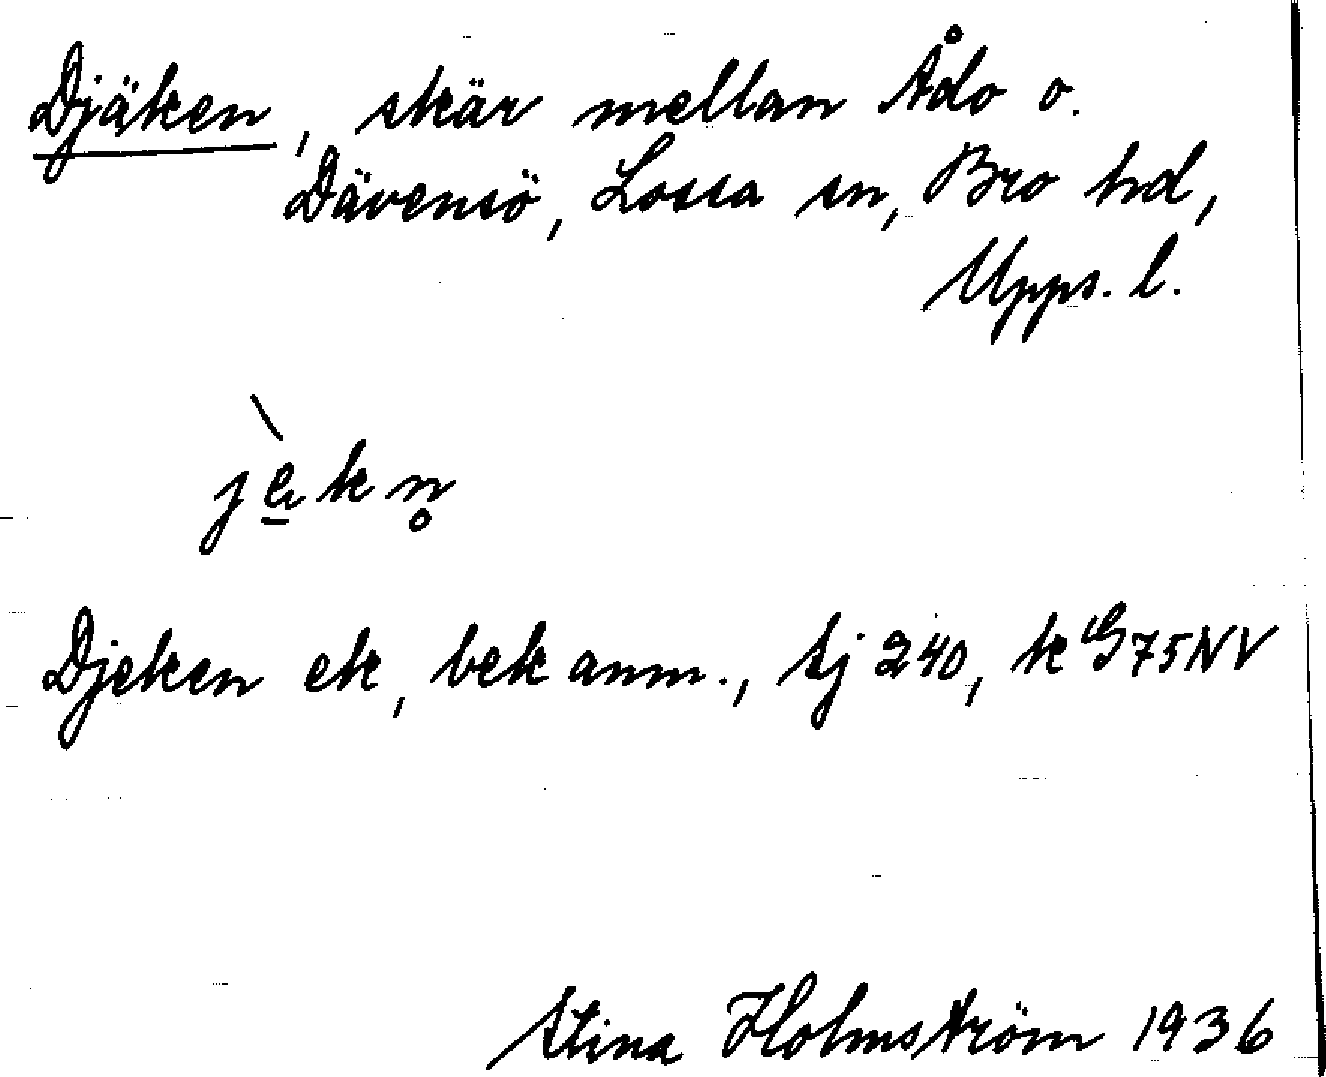 Djäken, skär mellan Ådö o.
Dävensö, Lossa sn, Bro hd,
Upps. l.
jèkn̥
Djeken ek, bek anm., sj 240, k G75NV
Stina Holmström 1936